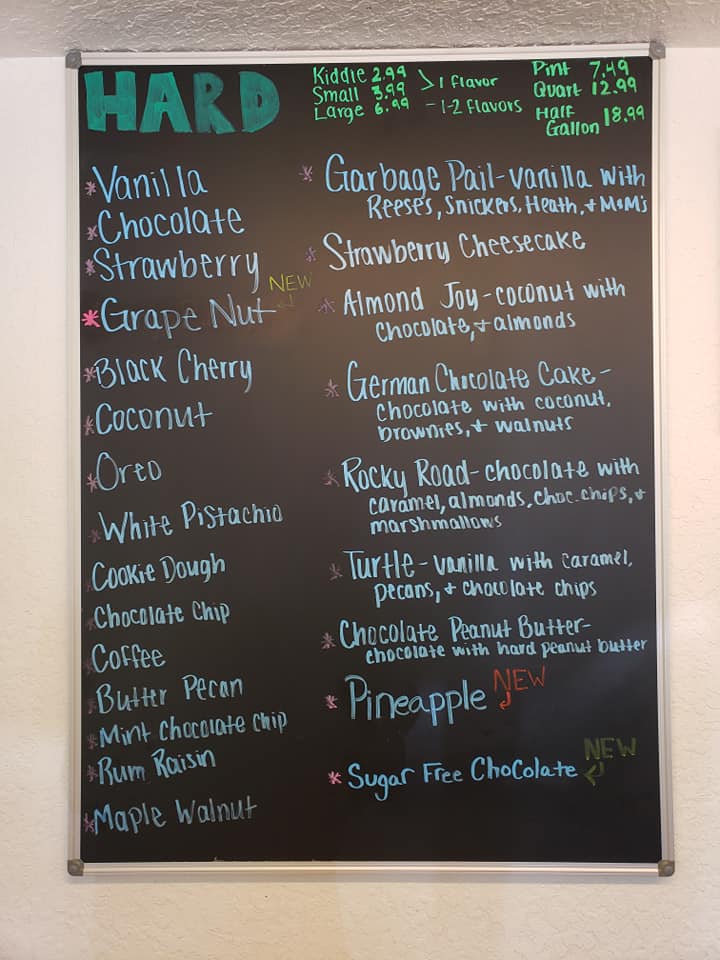 HARD
Kiddie 2.99
Small 3.99
> 1 flavor
Large 6.99 - 1-2 flavors
Pint 7.49
Quart 12.99
Half
Gallon 18.99
* Vanilla
* Chocolate
* Strawberry
* Grape Nut NEW
* Black Cherry
* Coconut
* Oreo
* White Pistachio
* Cookie Dough
* Chocolate Chip
* Coffee
* Butter Pecan
* Mint Chocolate Chip
* Rum Raisin
* Maple Walnut
* Garbage Pail - vanilla with
Reese's, Snickers, Heath, + M&M's
* Strawberry Cheesecake
* Almond Joy - coconut with
chocolate, + almonds
* German Chocolate Cake -
chocolate with coconut,
brownies, + walnuts
* Rocky Road - chocolate with
caramel, almonds, choc. chips, +
marshmallows
* Turtle - vanilla with caramel,
pecans, + chocolate chips
* Chocolate Peanut Butter -
chocolate with hard peanut butter
* Pineapple NEW
* Sugar Free Chocolate NEW